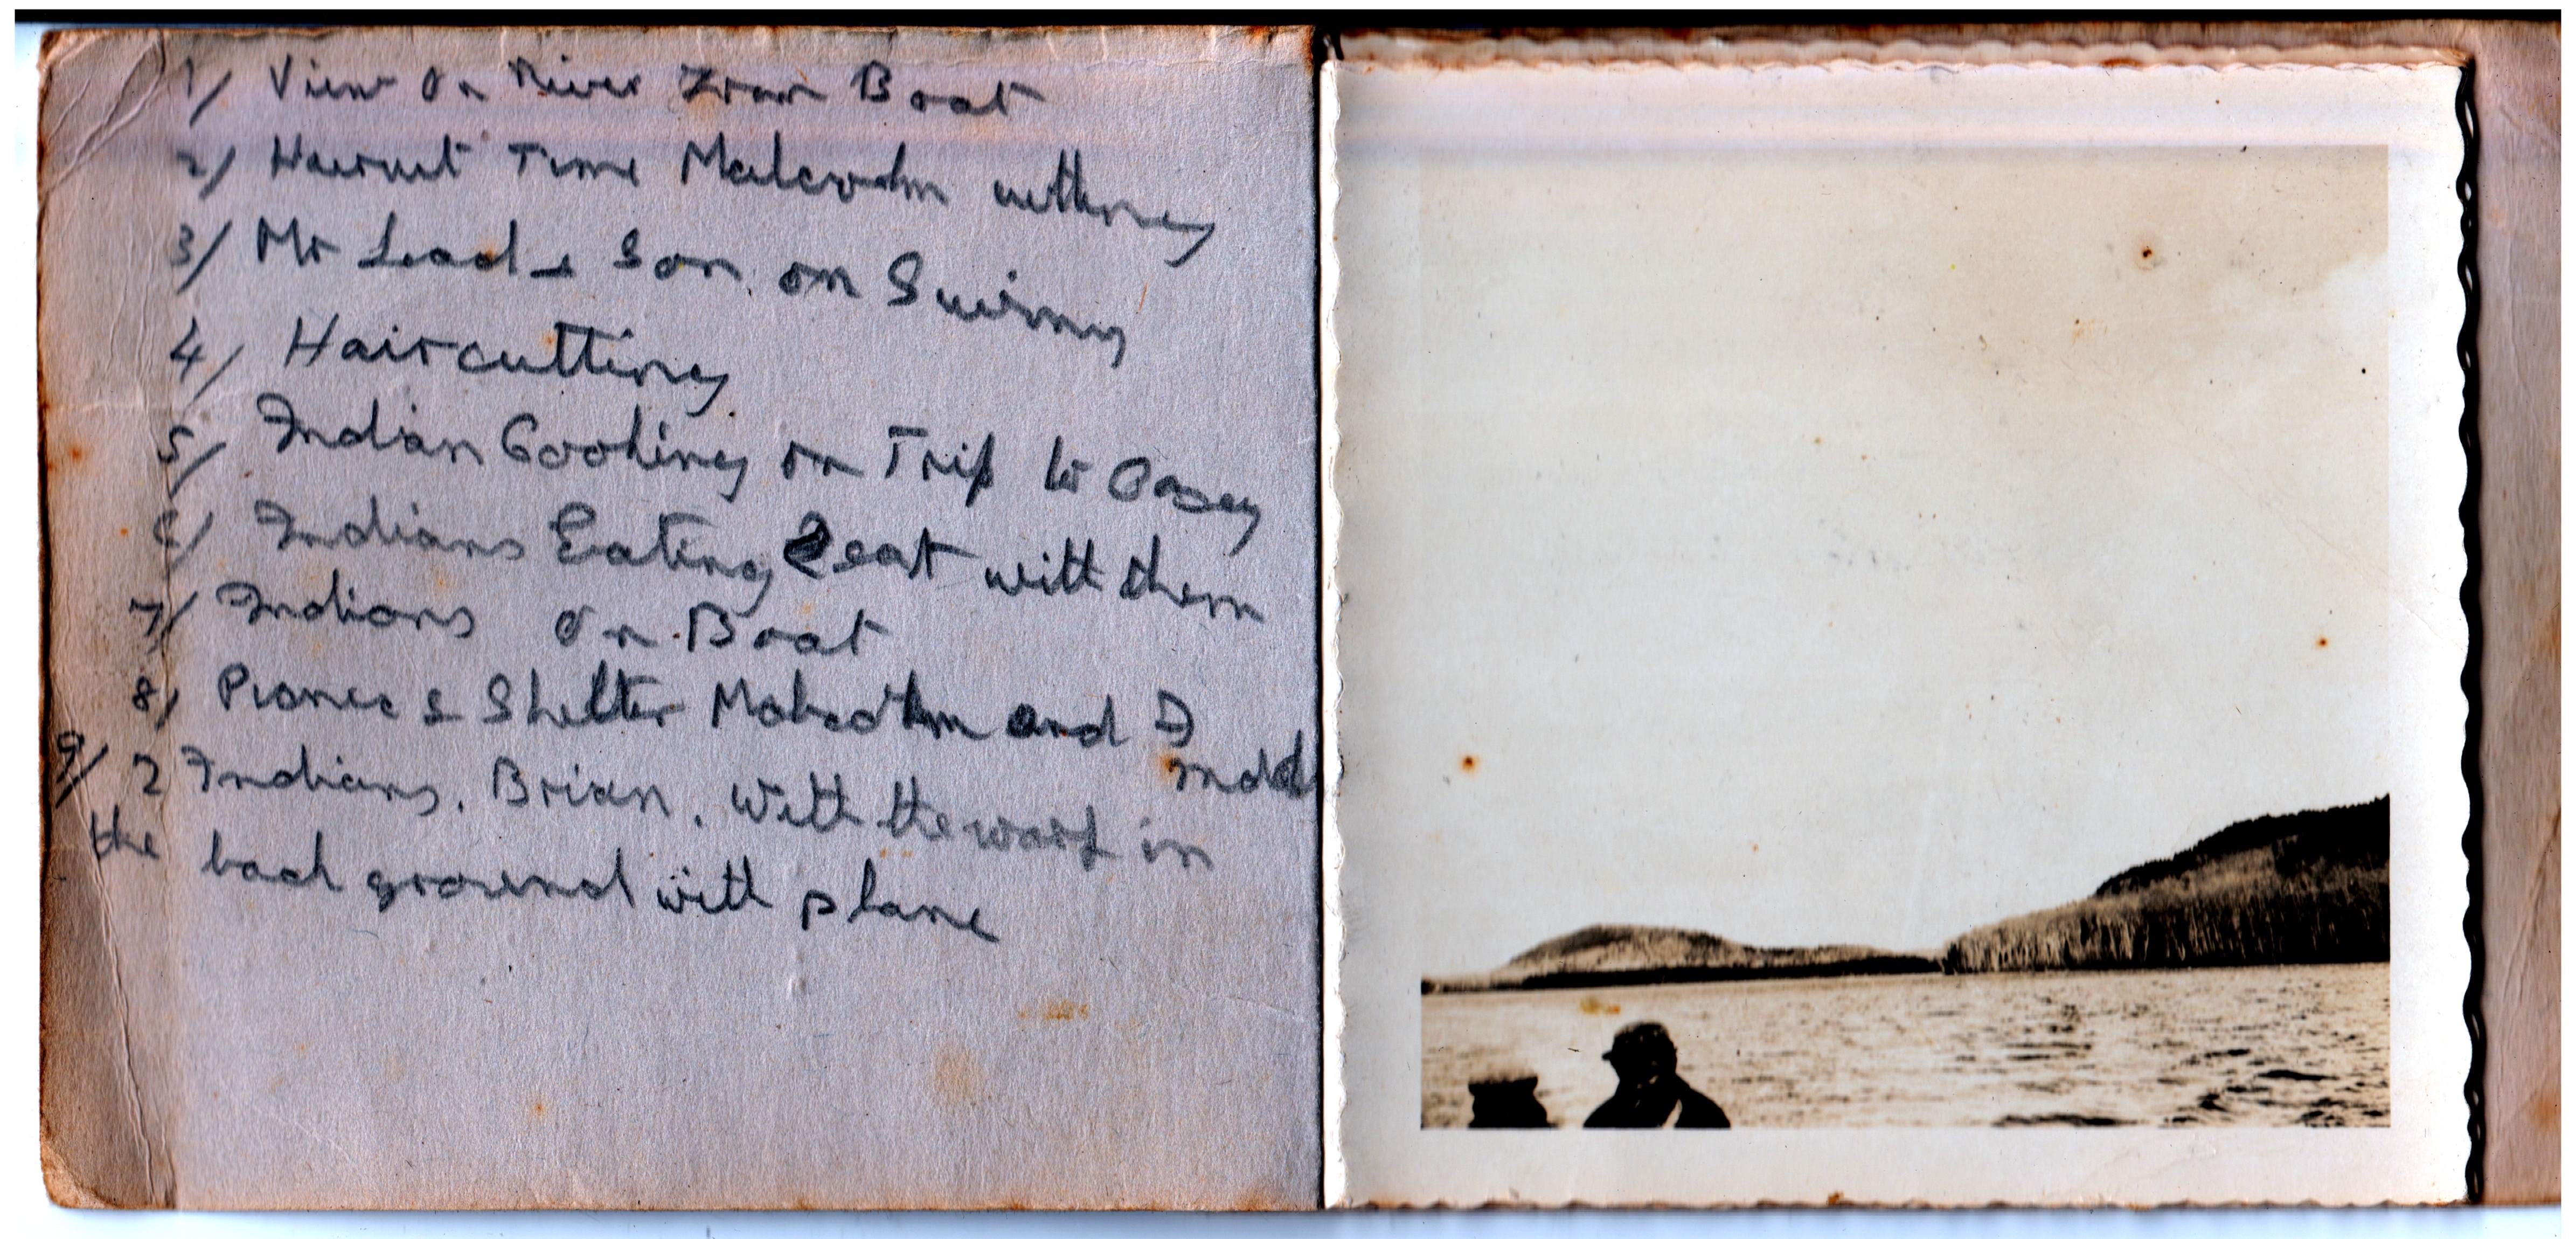 1/ View On River From Boat
2/ Haircut Time Malcolm cutting
3/ Mr Lead & Son on Swing
4/ Haircutting
5/ Indian Cooking on Trip to Casey
6/ Indians Eating I eat with them
7/ Indians On Boat
8/ & Shelter Malcolm and I
made
9/ 2 Indians, Brian, with the warf in
the back ground with plane